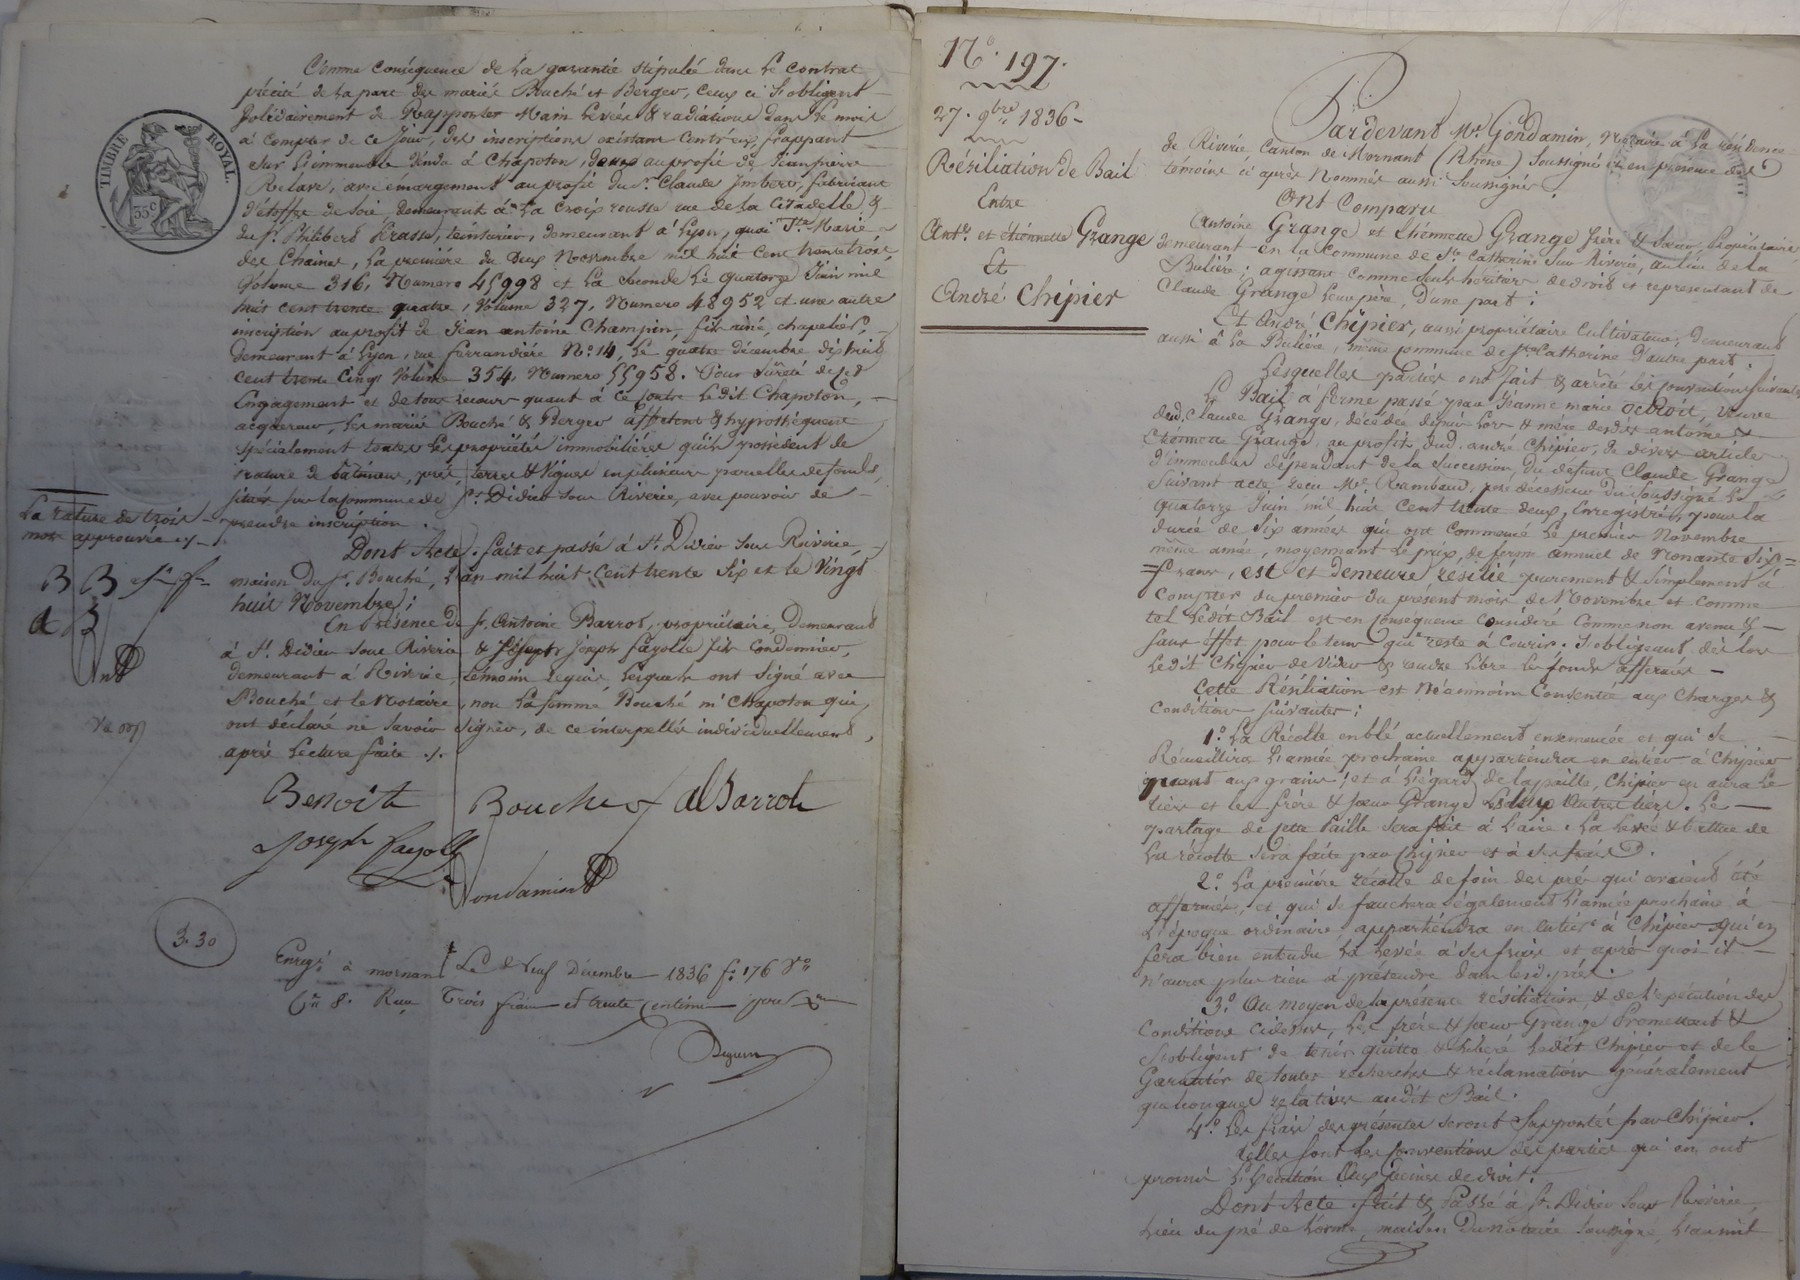 Comme conséquence de la garantie stipulée dans le contrat
précité de la part des mariés Bouché et Berger, ceux ci s'obligent
solidairement de Rapporter Main levées & radiations dans le mois
à compter de ce jour, des inscriptions existant contr'eux, frappant
sur l'immeuble vendu à Chapoton, deux au profit de Jean pierre
avec émargement au profit du Sr. Claude Imbert, fabricant
d'étoffes de soie, demeurant à la Croix rousse rue de la Citadelle &
du Sr. Philibert teinturier, demeurant à Lyon, quai Ste. Marie
des Chaînes, la première du deux Novembre mil huit cent trente trois,
Volume 316, Numero 45998 et la seconde le quatorze Juin mil
huit cent trente quatre, Volume 327, Numero 48952 et une autre
inscription au profit de Jean antoine Champin, fils ainé, chapelier,
demeurant à Lyon, rue ferrandière No. 14, le quatre décembre dix huit
cent trente cinq Volume 354, Numero 55958. Pour sûreté de cet
Engagement et de tous recours quant à ce contre ledit Chapoton,
acquéreur, les mariés Bouché & Berger affectent & hypothèquent
spécialement toutes les propriétés immobilières qu'ils possèdent de
nature de bâtimens, prés, terres & Vignes en plusieurs parcelles de fonds,
situés sur la commune de St. Didier sous Riverie, avec pouvoir de
prendre inscription.
La rature de trois
mots approuvée ./.
B B
Dont Acte. fait et passé à St. Didier sous Riverie,
maison du Sr. Bouché, l'an mil huit cent trente Six et le Vingt
huit Novembre;
En présence de Sr. Antoine Barrot, propriétaire, demeurant
à St. Didier sous Riverie & Joseph fayolle fils Cordonnier,
demeurant à Riverie, témoins requis, lesquels ont signé avec
Bouché et le Notaire, non la femme Bouché ni Chapoton qui
ont déclaré ne savoir signer, de ce interpellés individuellement,
après lecture faite ./.
Benoit Bouché alBarrot
Joseph fayolle
Gondamin
3.30
Enregé. à mornant le Neuf Décembre 1836 fo. 176 Vo
Ce 8. Reçu Trois francs et trente centimes pour
No. 197.
27. 9bre 1836
Résiliation de Bail
Entre
Ante. et étiennette Grange
Et
André Chipier
TIMBRE ROYAL.
35 c
Pardevant Me. Gondamin, Notaire à la résidence
de Riverie Canton de Mornant (Rhône) Soussigné et en présence des
témoins ci après Nommés aussi Soussignés
Ont Comparu
Antoine Grange et Etiennette Grange frère & sœur, propriétaires,
demeurant en la Commune de Ste. Catherine sous Riverie, au lieu de la
Bulière; agissant comme seuls héritiers de droit et représentant de
Claude Grange leur père, d'une part;
Et André Chipier, aussi propriétaire cultivateur, demeurant
aussi à la Bulière, même commune de Ste. Catherine d'autre part.
Lesquelles parties ont fait & arrêté les conventions suivantes
Le Bail à ferme passé par Jeanne marie veuve
dud. Claude Grange, décédée depuis lors & mère desdits antoine &
Etiennette Grange, au profit dud. andré Chipier, de divers articles
d'immeubles dépendant de la succession du défunt Claude Grange
suivant acte reçu Me. Rambaud, prédécesseur du soussigné le
quatorze Juin mil huit cent trente deux, Enregistré, pour la
durée de six années qui ont commencé le premier Novembre
même année, moyennant le prix de ferme annuel de Nonante Six
francs, est et demeure résilié purement & simplement à
compter du premier du present mois de Novembre et comme
tel ledit Bail est en conséquence considéré comme non avenu &
sans effet pour le tems qui reste à courir. S'obligeant dès lors
ledit Chipier de vider & rendre libre les fonds affermés
Cette Résiliation est Néanmoins Consentie aux Charges &
Conditions suivantes;
1o. La Récolte en blé actuellement ensemencée et qui se
Récueillira l'année prochaine appartiendra en entier à Chipier
quant aux grains; et à l'égard de la paille, Chipier en aura le
tiers et les frère & sœur Grange les deux autres tiers. Le
partage de cette Paille sera fait à l'aire. La levée & battue de
la récolte sera faite par Chipier et à ses frais.
2o. La première récolte de foin des prés qui avaient été
affermés, et qui se fauchera également l'année prochaine à
l'époque ordinaire appartiendra en entier à Chipier qui en
fera bien entendu la levée à ses frais et après quoi il
n'aura plus rien à prétendre dans lesd. prés.
3o. Au moyen de la présente résiliation & de l'exécution des
Conditions cidessus, les frère & sœur Grange Promettent &
s'obligent de tenir quitte & libéré ledit Chipier et de le
Garantir de toutes recherches & réclamations généralement
quelconques relatives audit Bail.
4o. Les frais des présentes seront Supportés par Chipier.
Telles sont les conventions des parties qui en ont
promis l'Exécution aux peines de droit.
Dont Acte. fait & Passé à St. Didier sous Riverie,
lieu du pré de Lorme, maison du Notaire soussigné, L'an mil